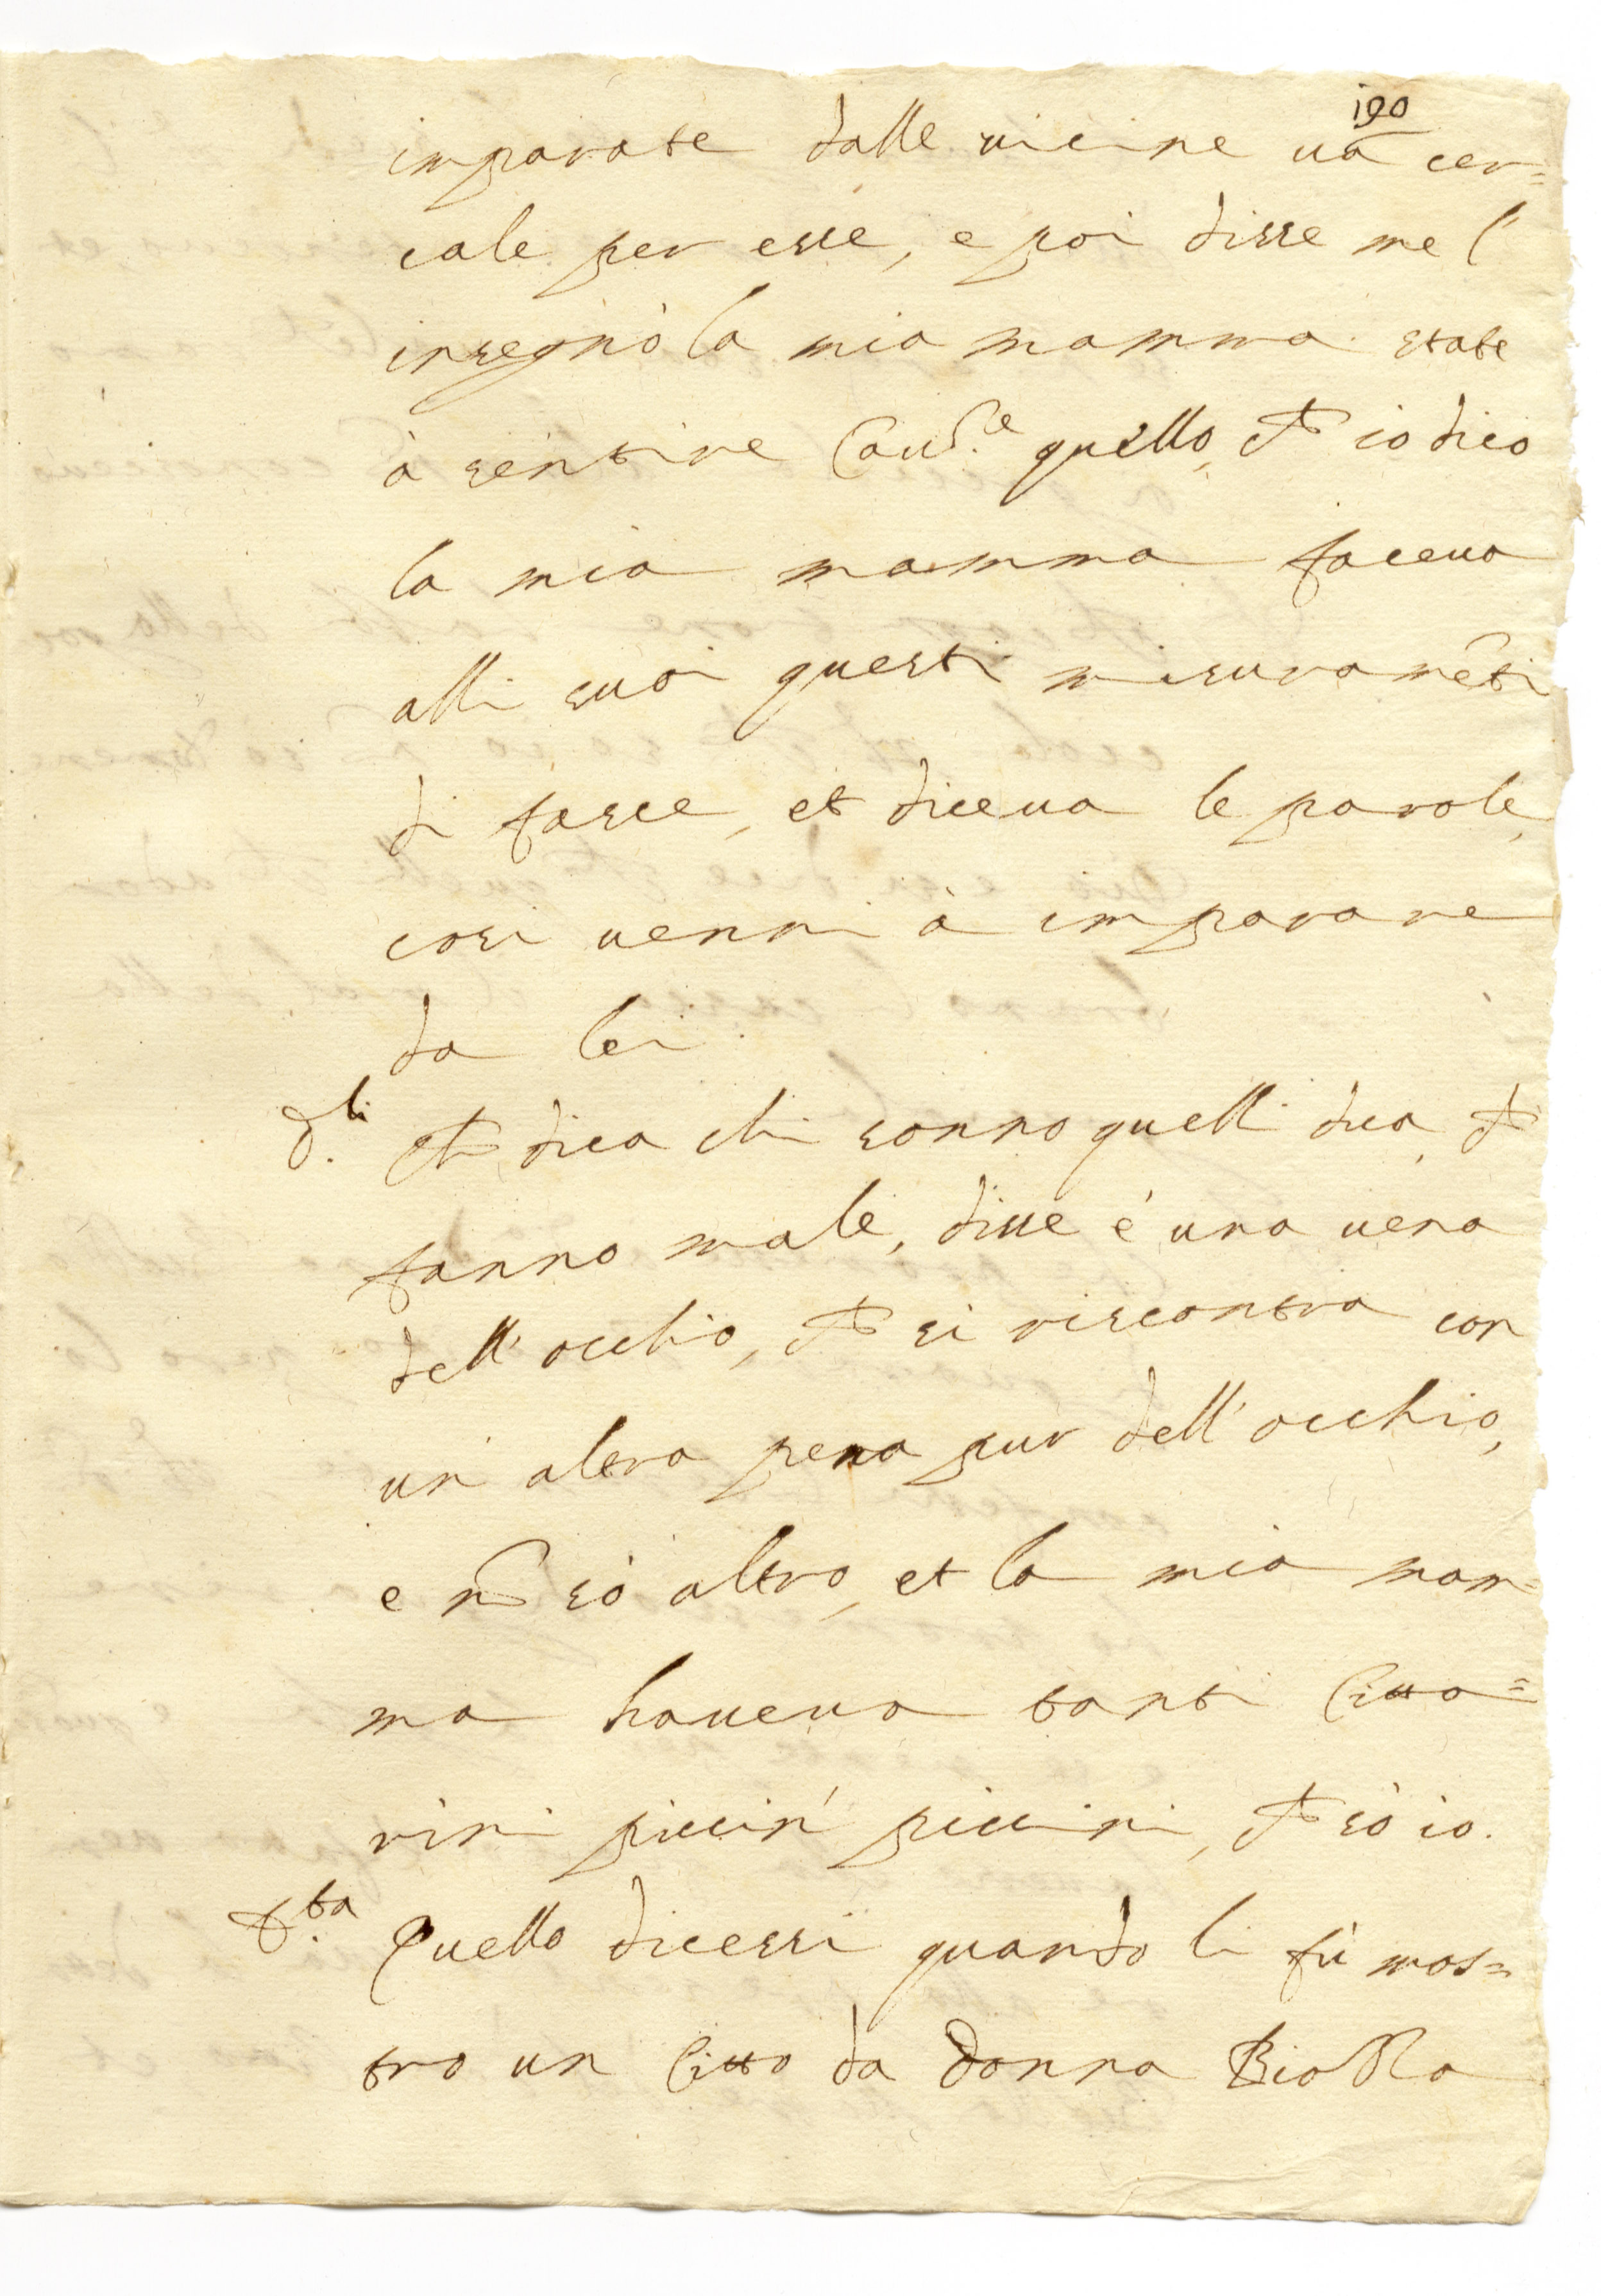 190
imparate dalle uicine uā cer=
cale per esse, e poi disse me l'
insegnò la mia mamma state
à sentire quello, ch io dico
la mia mamma faceua
alli suoi questi misuramēti
di fasce, et diceua le parole,
cosi uenni à imparare
da lei
D.li ch dica chi sonno quelli dua, ch
fanno male, disse é una uena
dell'occhio, ch si riscontra con
un altra pena pur dell'occhio,
e nō sò altro, et la mia mam=
ma haueua tanti Citto=
rini piccin' piccini, ch sò io.
Quello dicessi quando li fù mos=
tro un Citto da Donna